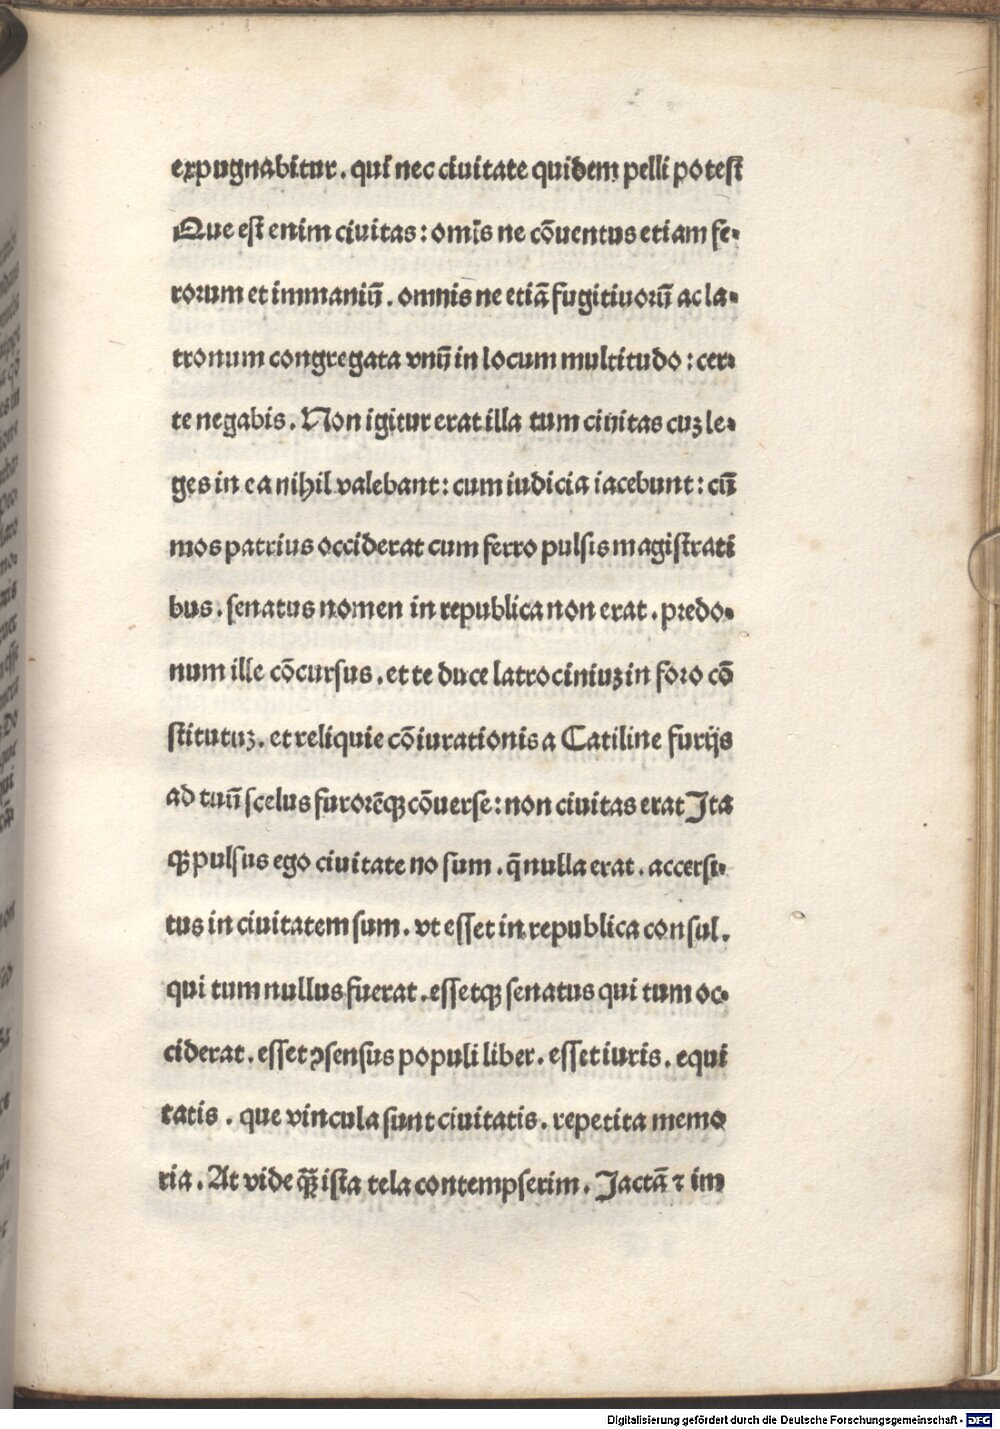 expugnabitur. qui nec ciuitate quidem pelli potest
Que est enim ciuitas: omĩs ne cõuentus etiam fe-
rorum et immaniũ. omnis ne etiã fugitiuorũ ac la-
tronum congregata vnũ in locum multitudo: cer-
te negabis. Non igitur erat illa tum ciuitas cuꝫ le-
ges in ea nihil valebant: cum iudicia iacebunt: cũ
mos patrius occiderat cum ferro pulsis magistrati
bus. senatus nomen in republica non erat. predo-
num ille cõcursus. et te duce latrociniuꝫ in foro cõ
stitutuꝫ. et reliquie cõiurationis a Catiline furijs
ad tuũ scelus furorẽqꝫ cõuerse: non ciuitas erat Ita
qꝫ pulsus ego ciuitate no sum. q̃ nulla erat. accersi-
tus in ciuitatem sum. vt esset in republica consul.
qui tum nullus fuerat. essetqꝫ senatus qui tum oc-
ciderat. esset ꝯsensus populi liber. esset iuris. equi
tatis. que vincula sunt ciuitatis. repetita memo
ria. At vide qꝫ̃ ista tela contempserim. Jactã ⁊ im
Digitalisierung gefördert durch die Deutsche Forschungsgemeinschaft - DFG